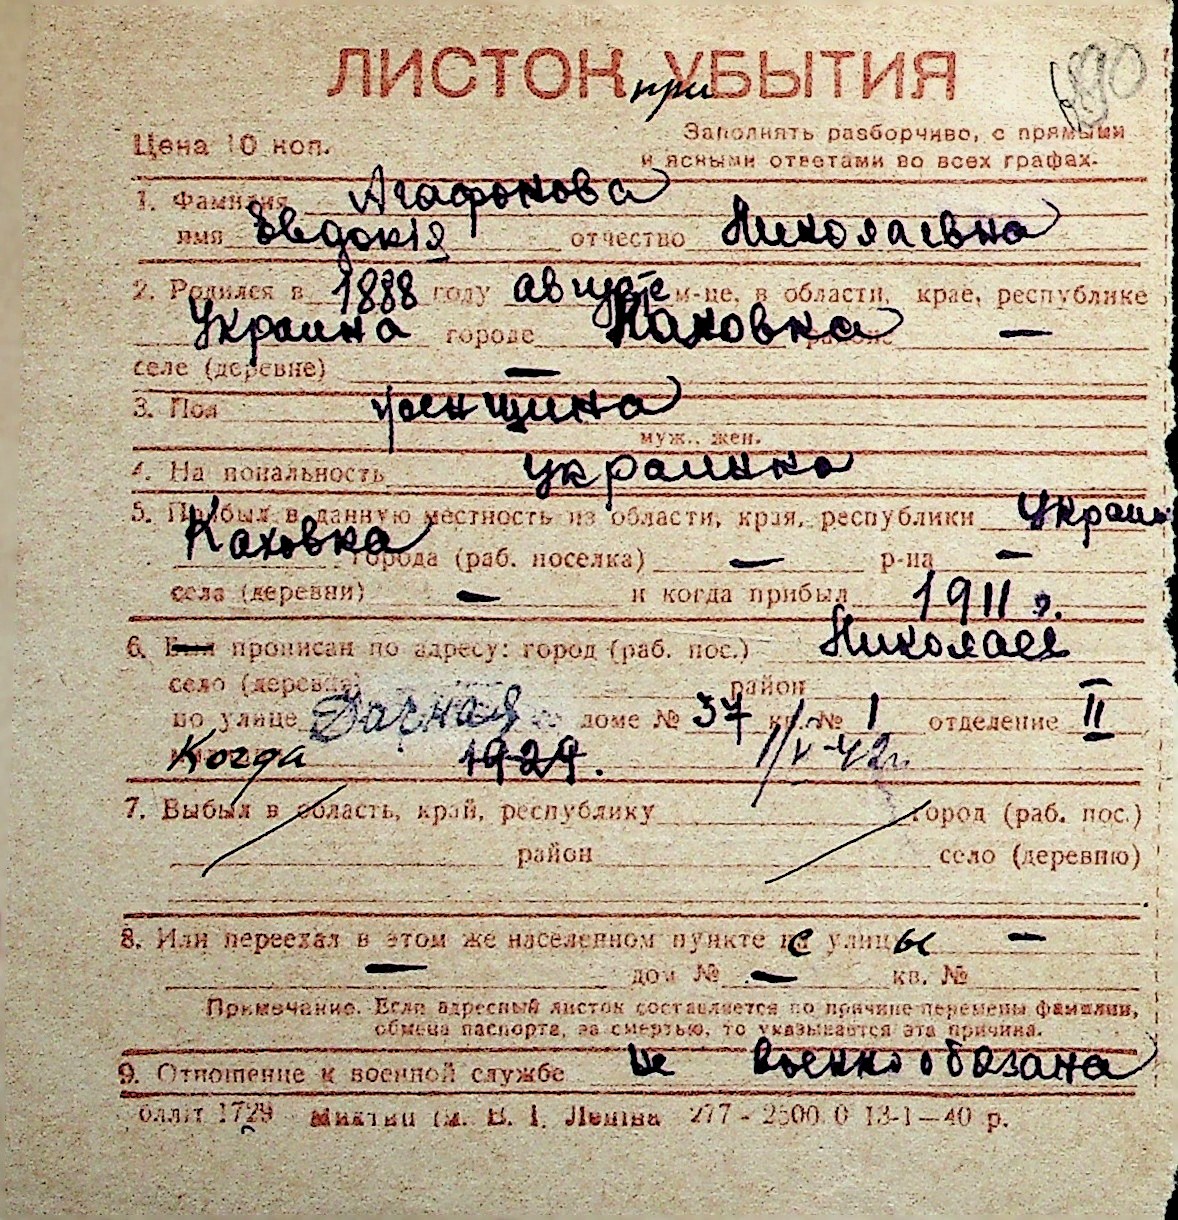 ЛИСТОК при УБЫТИЯ
Цена 10 коп.
Заполнять разборчиво, с прямыми
и ясными ответами во всех графах.
1. Фамилия Агафонова
имя Евдокія отчество Николаевна
2. Родился в 1888 году августе м-це, в области, крае, республике
Украина городе Каховка районе —
селе (деревне) —
3. Пол женщина
муж., жен.
4. Национальность украинка
5. Прибыл в данную местность из области, края, республики Украин
Каховка города (раб. поселка) — р-на —
села (деревни) — и когда прибыл 1911 г.
6. Был прописан по адресу: город (раб. пос.) Николаев
село (деревне) район
по улице Дачная доме № 37 кв. № 1 отделение II
Когда 1929. 1/V-42г.
7. Выбыл в область, край, республику город (раб. пос.)
район село (деревню)
8. Или переехал в этом же населенном пункте с улицы —
— дом № — кв. №
Примечание. Если адресный листок составляется по причине перемены фамилии,
обмена паспорта, за смертью, то указывается эта причина.
9. Отношение к военной службе не военнообязана
1729 ім. В. І. Леніна 277 - 2500.0 13-1—40 р.